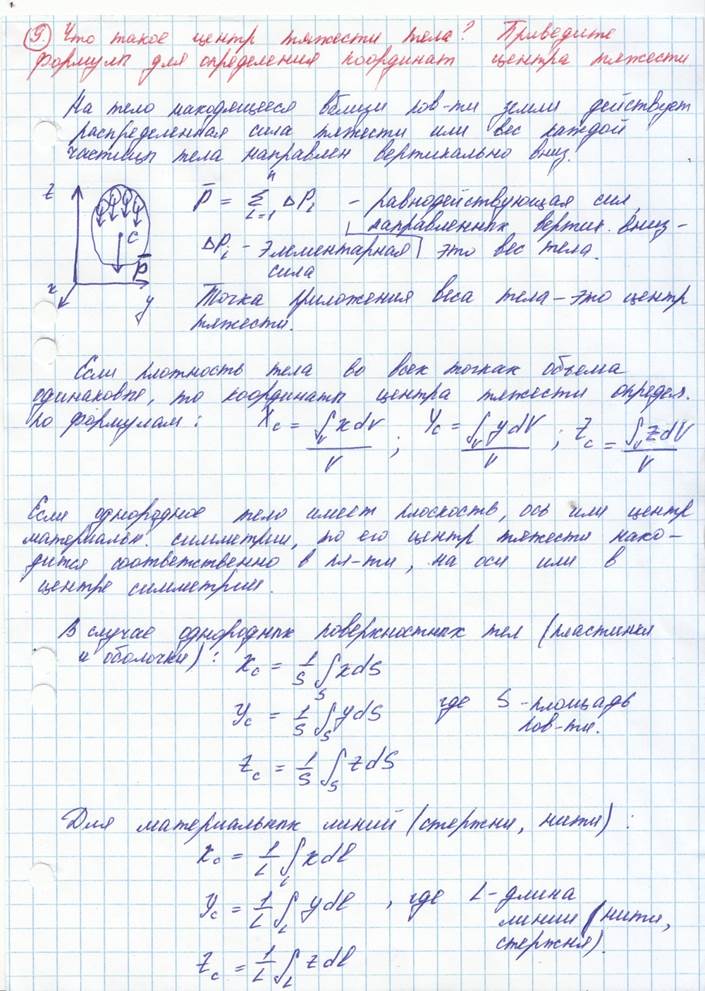 9. Что такое центр тяжести тела? Приведите
формулы для определения координат центра тяжести
На тело находящееся вблизи пов-ти земли действует
распределенная сила тяжести или вес каждой
частицы тела направлен вертикально вниз.
z
x
y
C
P̅
P̅ = Σ ΔPᵢ - равнодействующая сил,
n
i=1
направленных вертик. вниз -
ΔPᵢ - элементарная это вес тела.
сила
Точка приложения веса тела - это центр
тяжести.
Если плотность тела во всех точках объема
одинаковые, то координаты центра тяжести определ.
по формулам: Xc = ∫ᵥ x dv / V ; Yc = ∫ᵥ y dV / V ; Zc = ∫ᵥ z dV / V
Если однородное тело имеет плоскость, ось или центр
материальн. симметрии, то его центр тяжести нахо-
дится соответственно в пл-ти, на оси или в
центре симметрии.
В случае однородных поверхностных тел (пластинки
и оболочки): xc = 1/S ∫s x ds
yc = 1/S ∫s y ds где S - площадь
пов-ти.
zc = 1/S ∫s z ds
Для материальных линий (стержни, нити):
xc = 1/L ∫L x dl
yc = 1/L ∫L y dl , где L - длина
линии (нити,
стержня).
zc = 1/L ∫L z dl